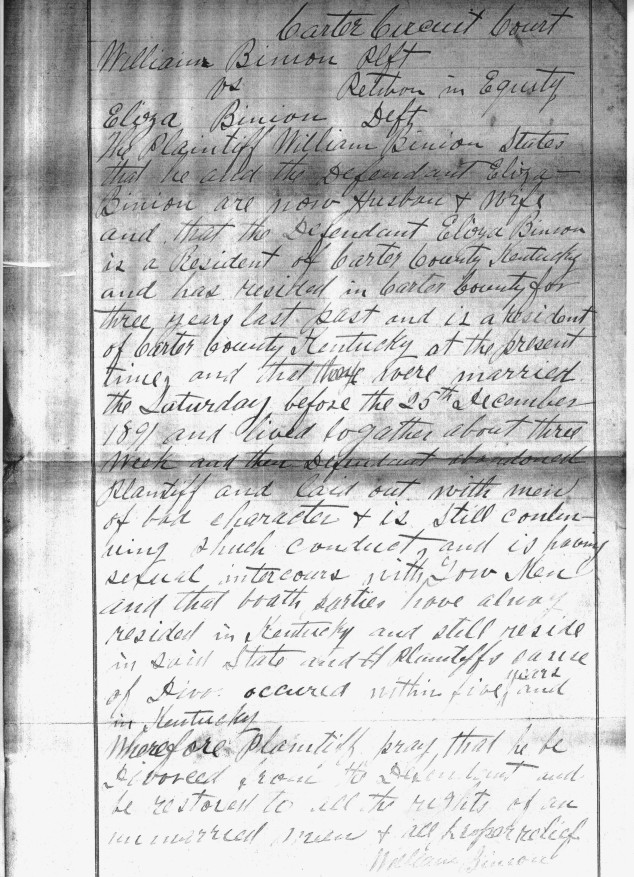 Carter Circuit Court
William Binion Plft
vs Petition in Equity
Eliza Binion Deft
The Plaintiff William Binion States
that he and the Defendant Eliza
Binion are now Husban & Wife
and that the Defendant Eliza Binion
is a Resident of Carter County Kentucky
and has resided in Carter County for
three years last past and is a Resident
of Carter County Kentucky at the present
time, and that they were married
the Saturday before the 25th December
1891 and lived togather about three
week and then Defendant abandoned
Plantiff and laid out with men
of bad character & is still contin-
uing shuch conduct, and is having
sexual intercours with Low Men
and that boath parties have alway
resided in Kentucky and still reside
in said State and Plaintiffs cause
of Divo. occured within five years and
in Kentucky
Wherefore Plaintiff pray, that he be
Divorced from the Defendant and
be restored to all the rights of an
unmarried man & all proper relief
William Binion